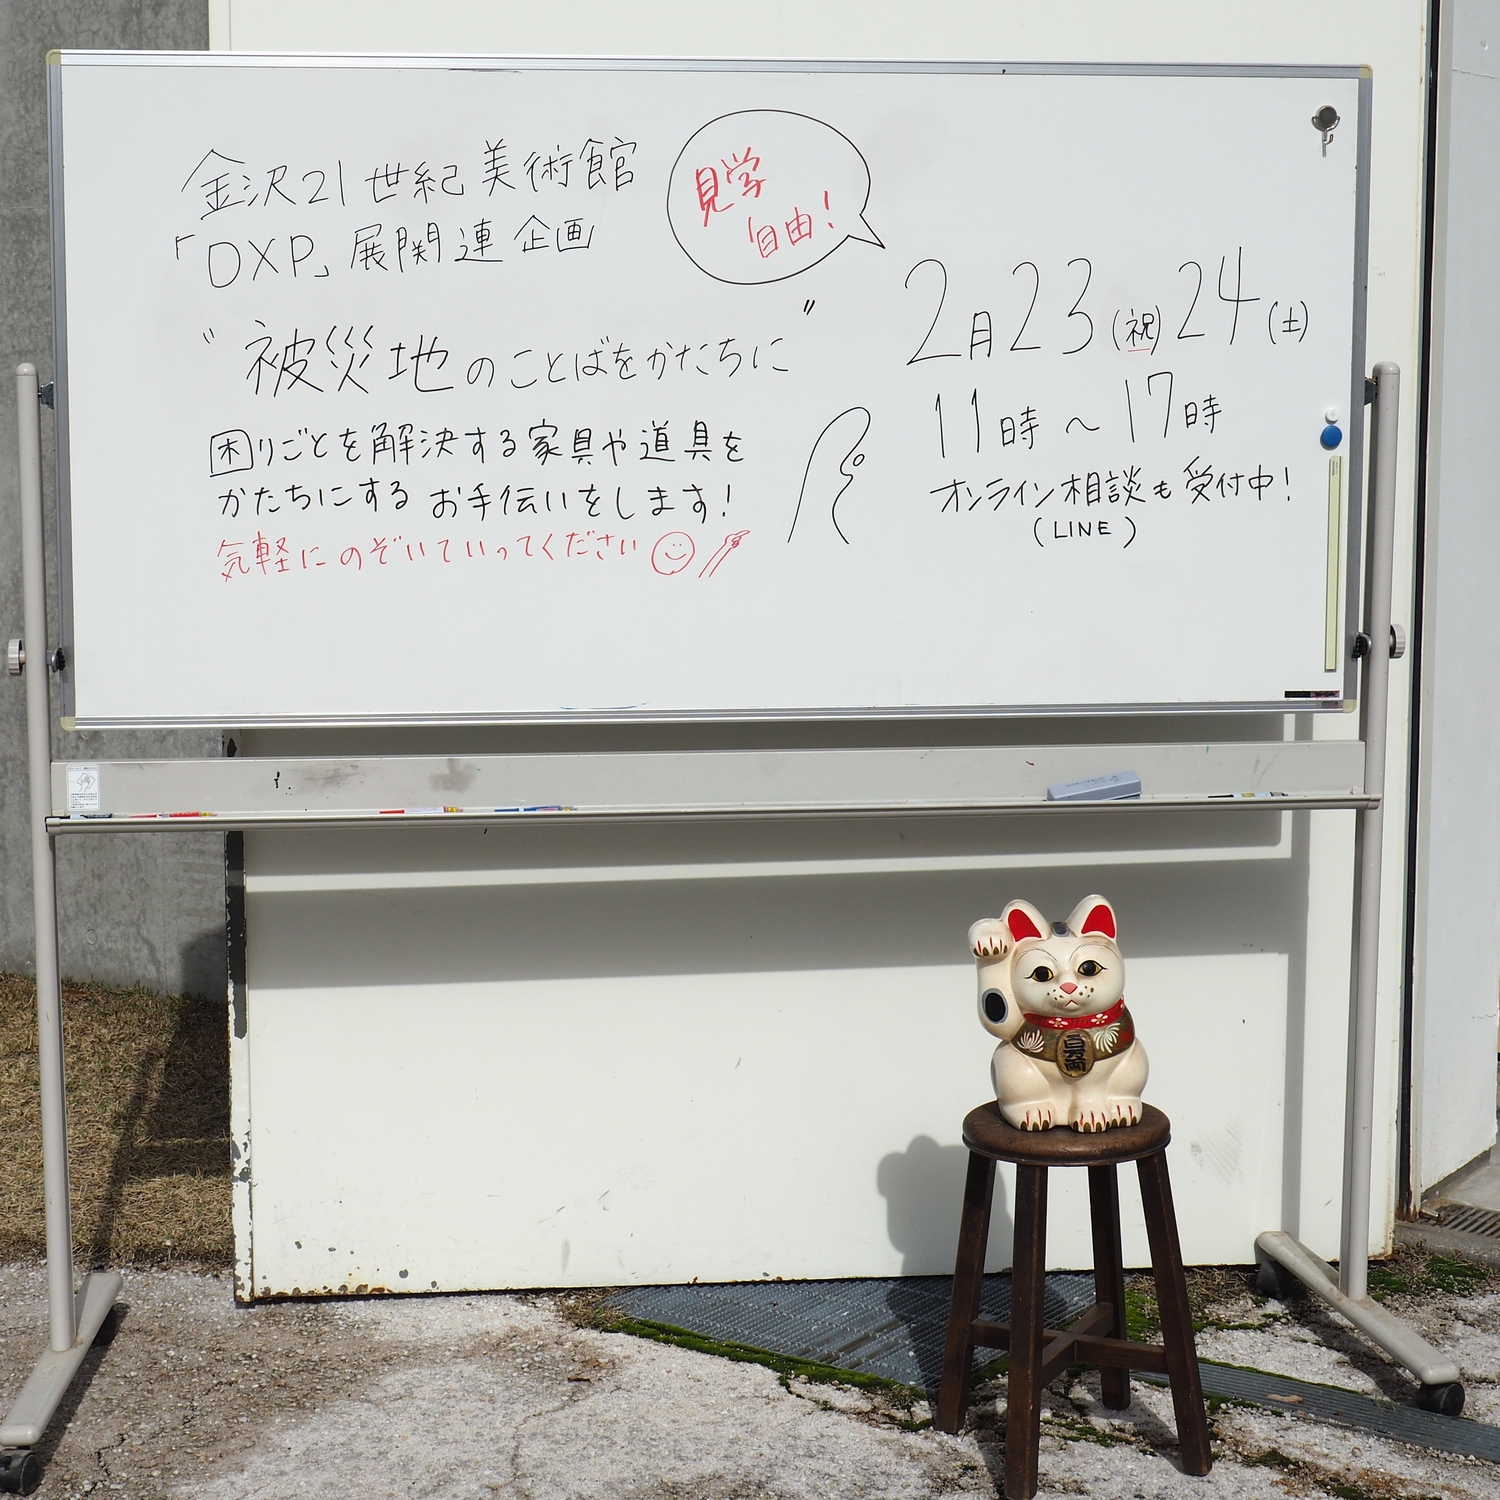 金沢21世紀美術館
「DXP」展関連企画
"被災地のことばをかたちに"
困りごとを解決する家具や道具を
かたちにするお手伝いをします!
気軽にのぞいていってください
見学
自由!
2月23(祝)24(土)
11時〜17時
オンライン相談も受付中!
(LINE)
百万両